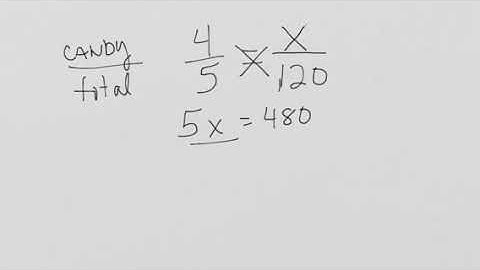 CANDY/total 4/5 = x/120
5x = 480